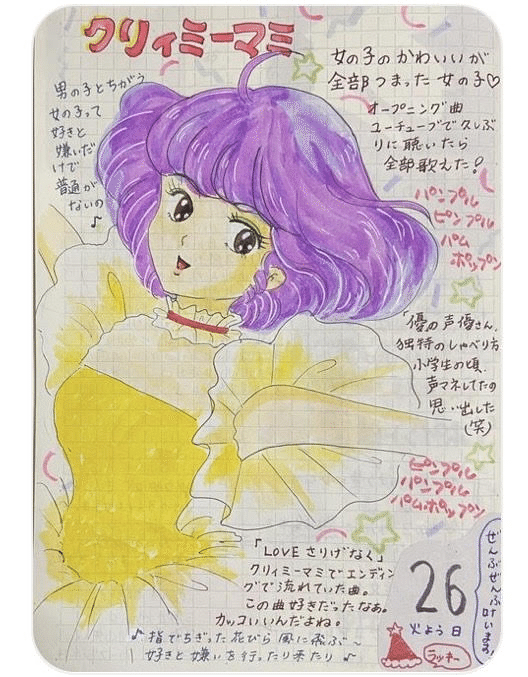 クリィミーマミ
女の子のかわいいが
全部つまった女の子♡
男の子とちがう
女の子って
好きと
嫌いだ
けで
普通が
ないの
♪
オープニング曲
ユーチューブで久しぶ
りに聴いたら
全部歌えた!
パンプル
ピンプル
パム
ポップン
「優の声優さん、
独特のしゃべり方
小学生の頃、
声マネしてたの
思い出した
(笑)
ピンプル
パンプル
パムポップン
「LOVEさりげなく」
クリィミーマミでエンディン
グで流れていた曲。
この曲好きだったなぁ。
カッコいいんだよね。
♪指でちぎった花びら風に飛ぶ〜
好きと嫌いを行ったり来たり♪
26
火よう日
ラッキー
ぜんぶぜんぶ叶います。